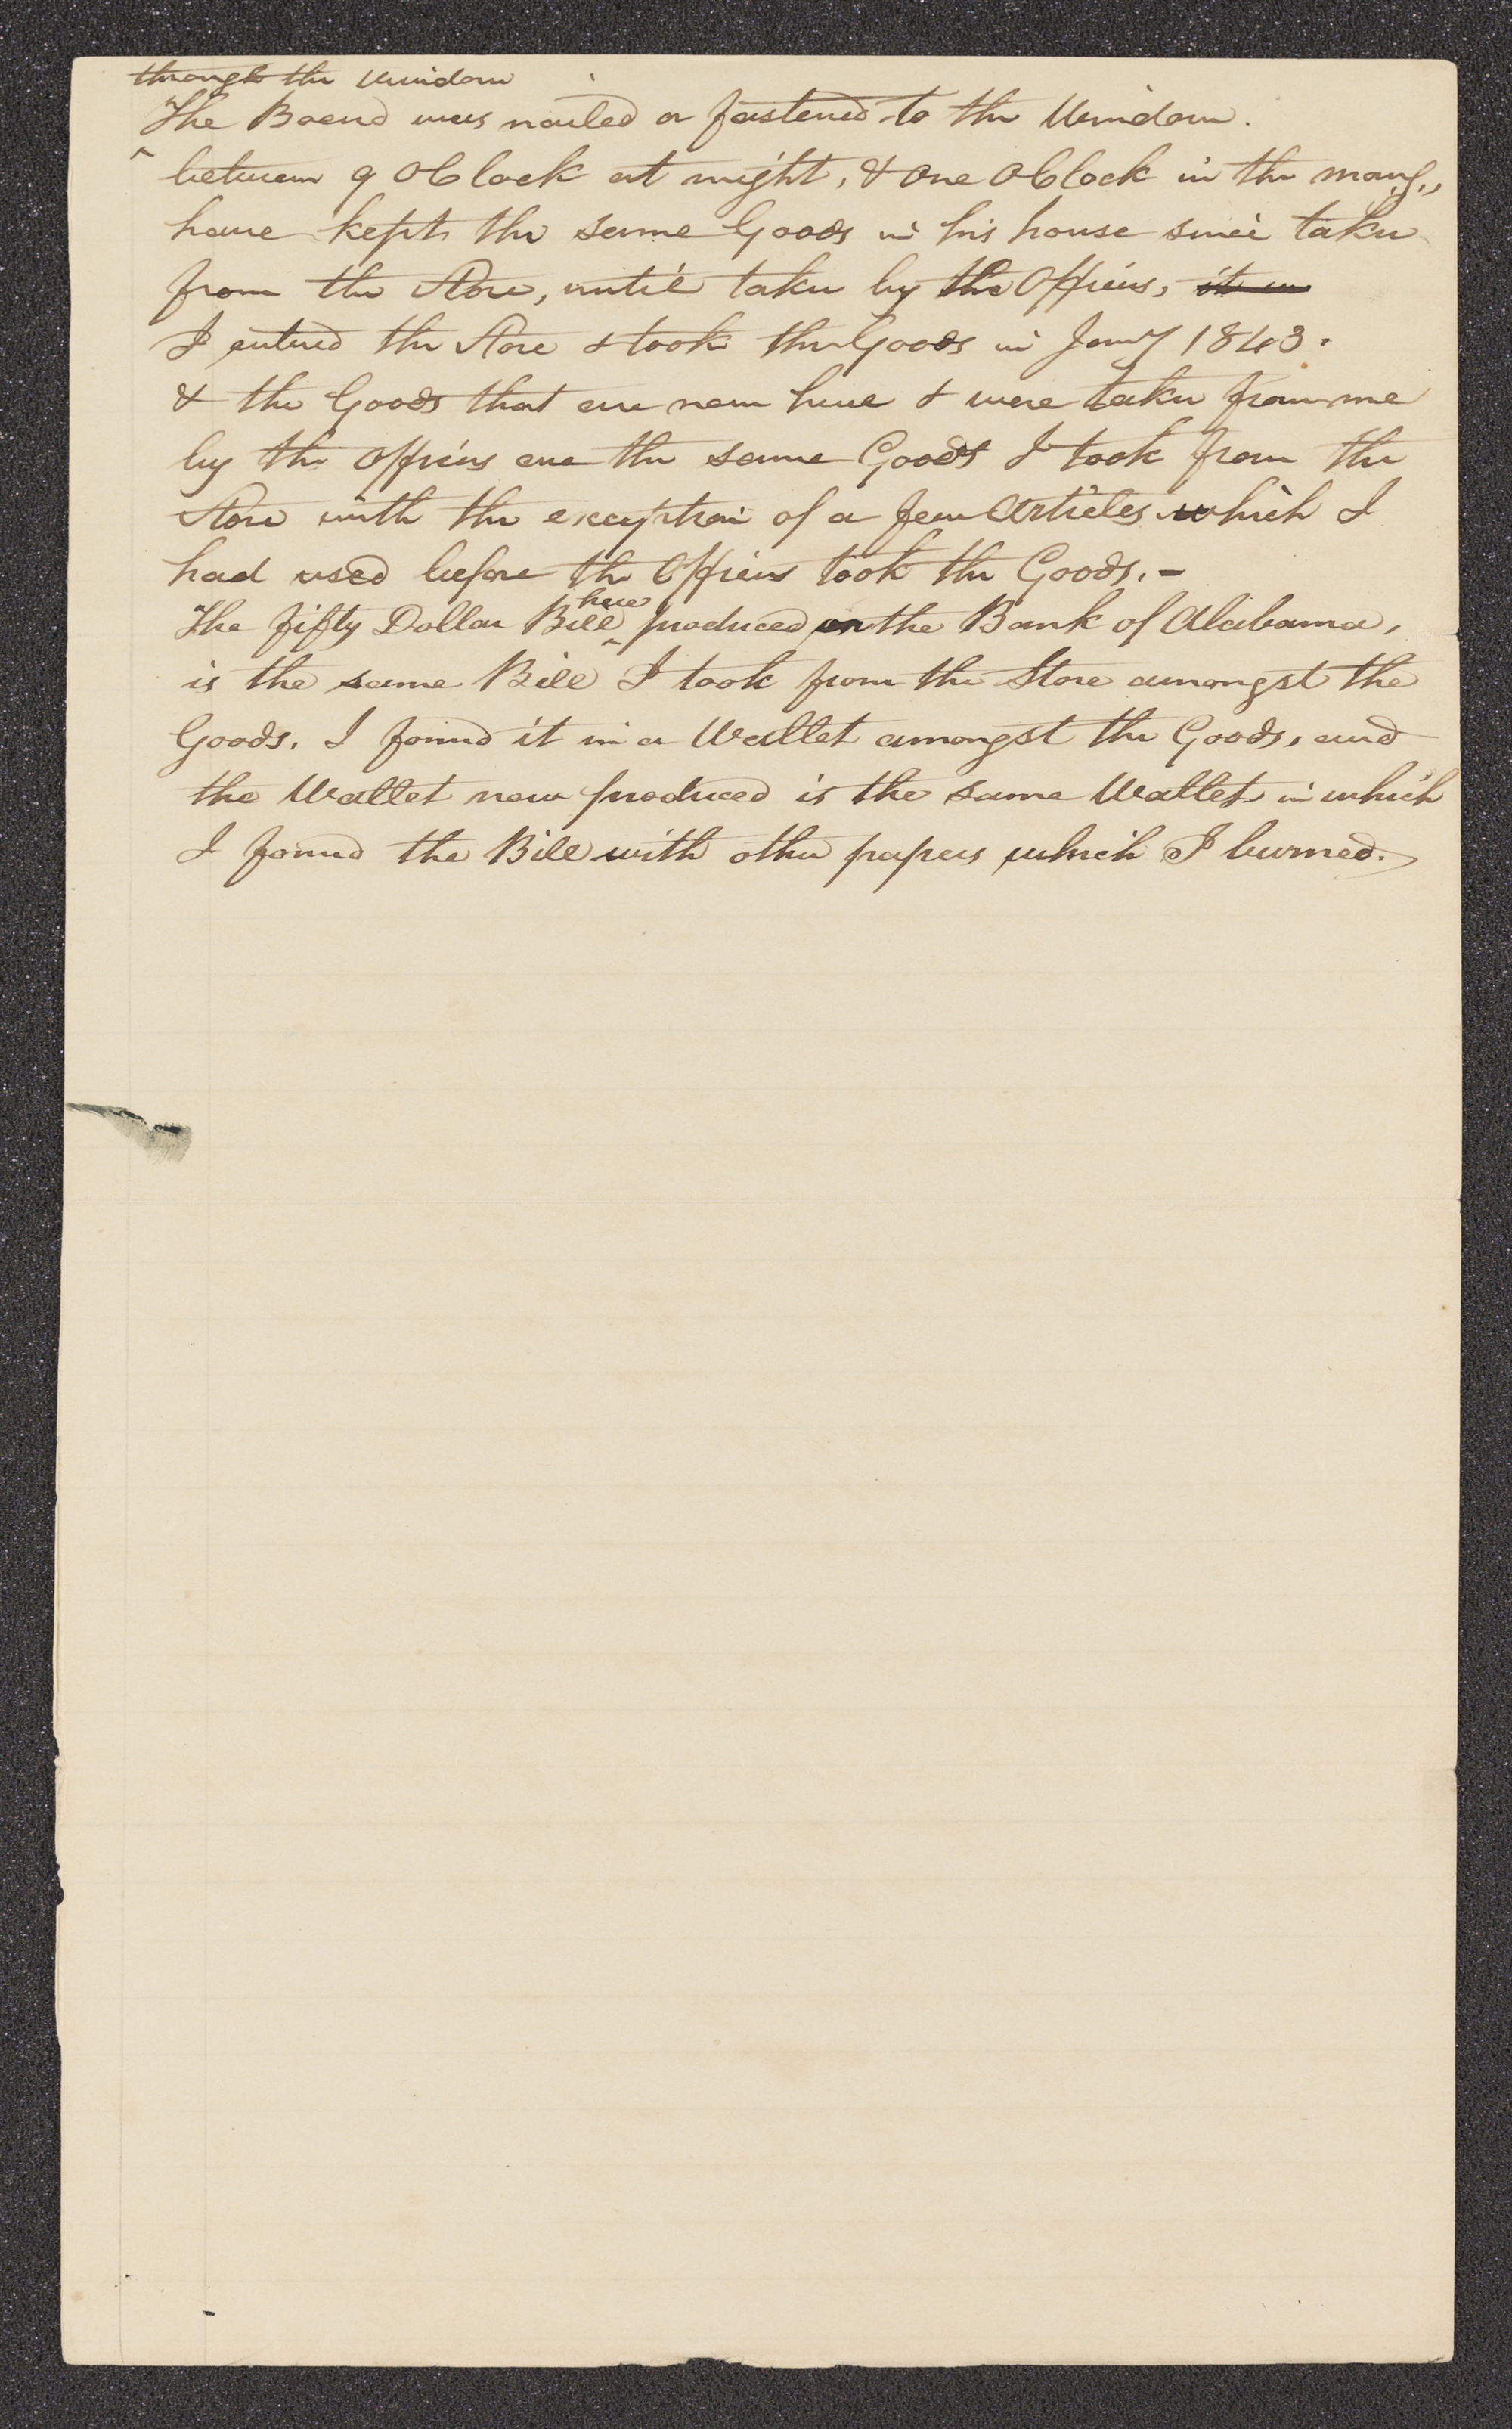 through the Window
The Board was nailed or fastened to the Window.
^ between 9 OClock at night, & One OClock in the morng.,
have kept the same Goods in his house since taken
from the Store, until taken by the Officers, it w
I entered the Store & took the Goods in Jany 1843.
& the Goods that are now here & were taken from me
by the officers are the same Goods I took from the
Store with the exception of a few Articles which I
had used before the Officers took the Goods.-
here
The fifty Dollar Bill ^ produced on the Bank of Alabama,
is the same Bill I took from the Store amongst the
Goods. I found it in a Wallet amongst the Goods, and
the Wallet now produced is the same Wallet in which
I found the Bill with other papers which I burned.